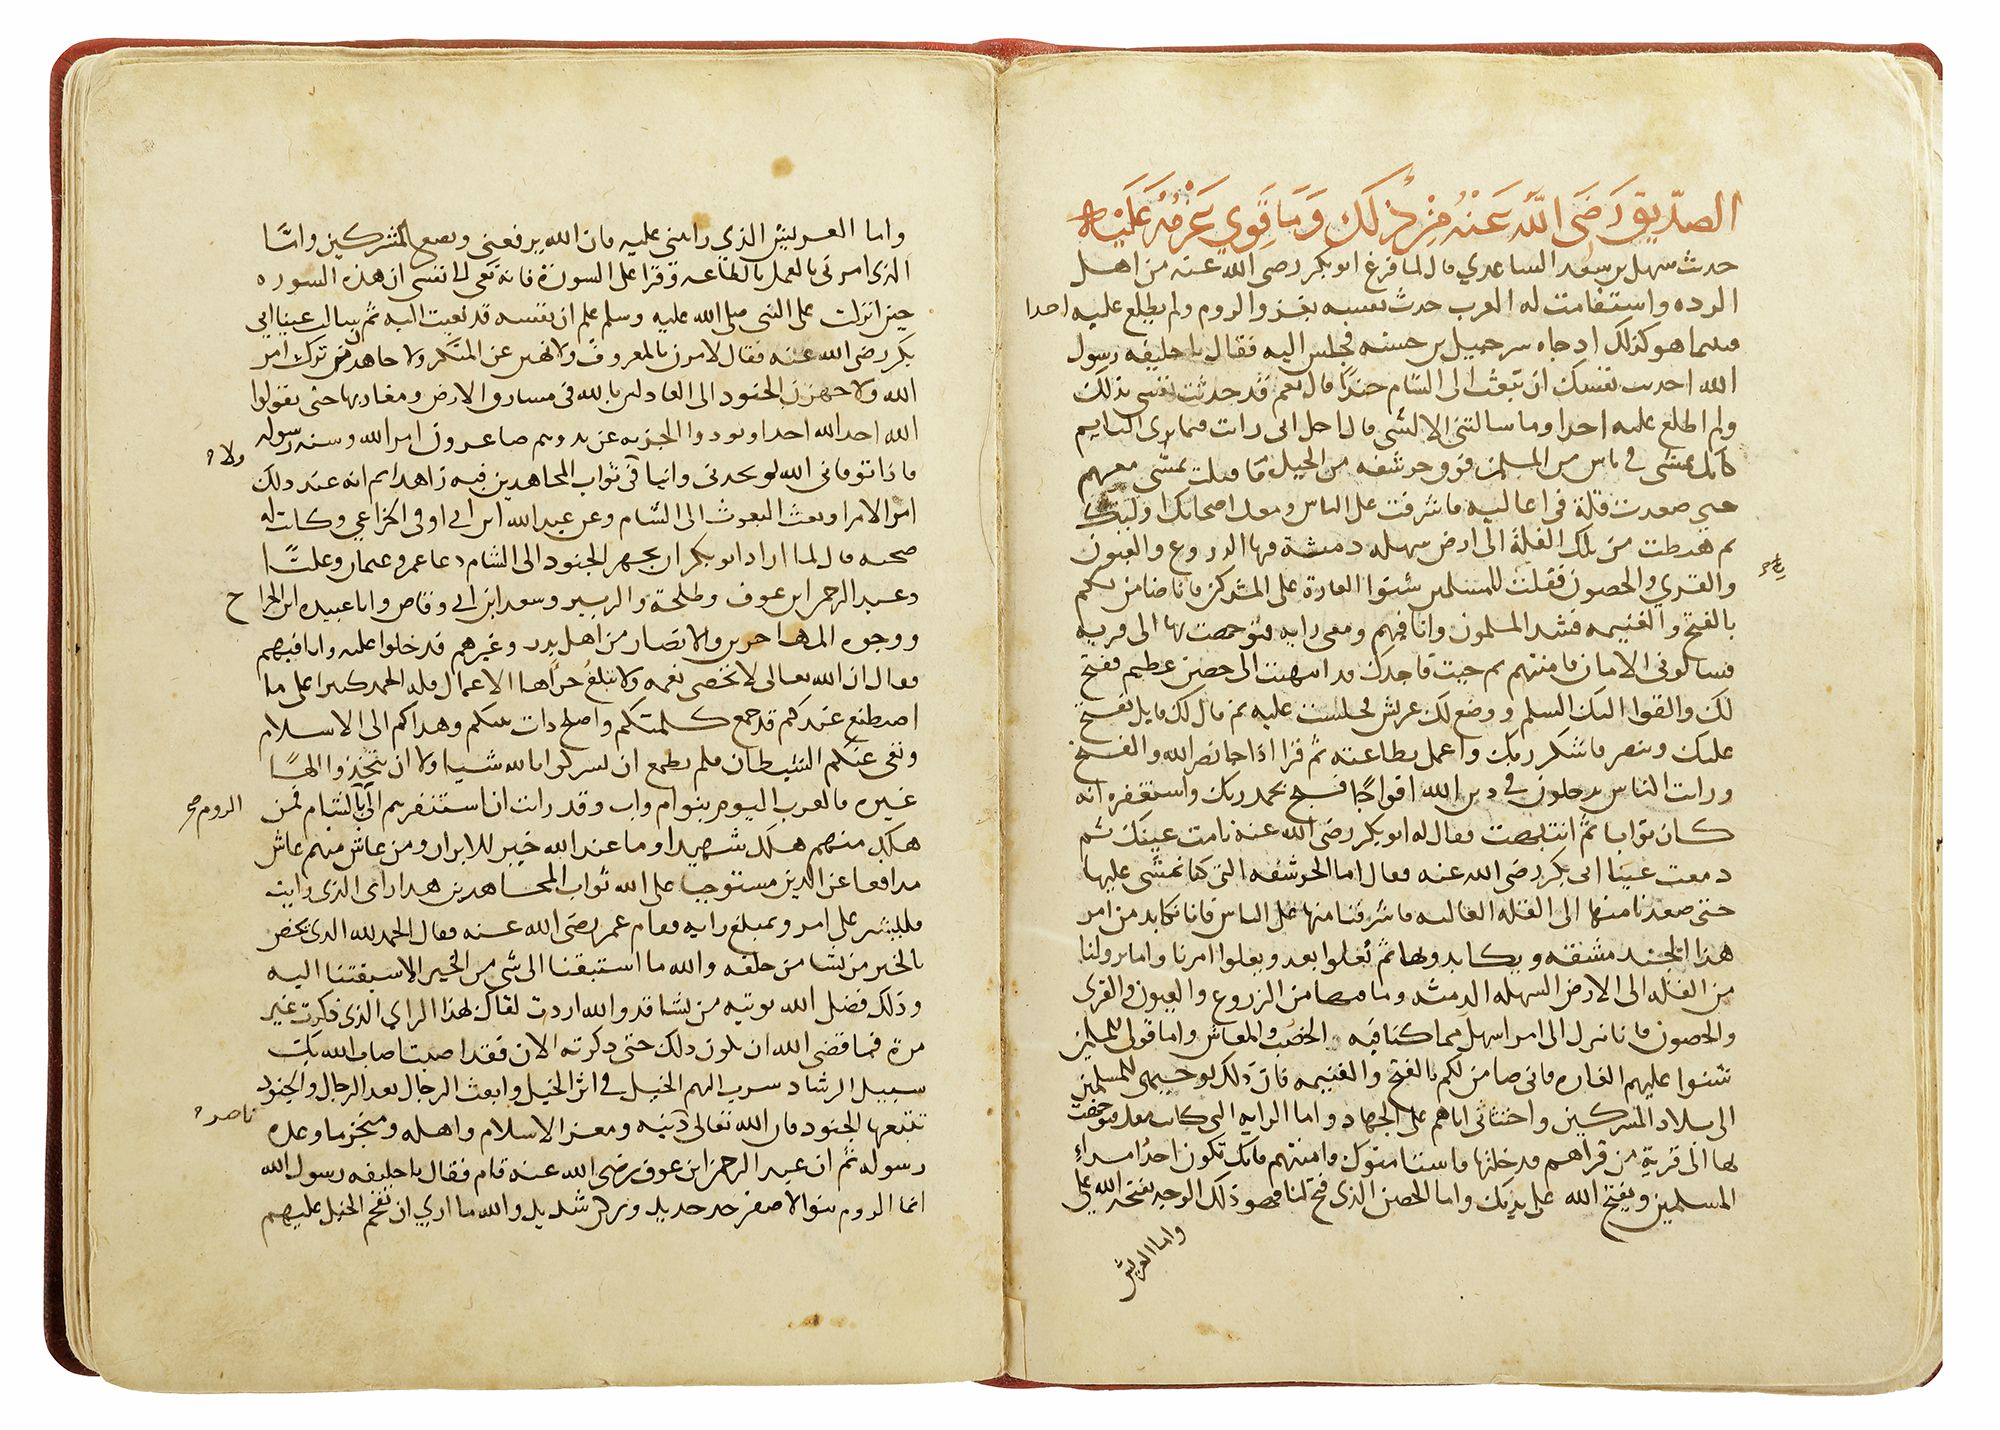 الصديق رضي الله عنه من ذلك وما قوي عزمه عليه
حدث سهل بن سعد الساعدي قال لما فرغ ابو بكر رضى الله عنه من اهل
الرده واستقامت له العرب حدث نفسه بغزو الروم ولم يطلع عليه احدا
فبينما هو كذلك اذ جاه سرحبيل بن حسنه فجلس اليه فقال يا خليفه رسول
الله احدثت نفسك ان تبعث الى الشام جندا قال نعم قد حدثت نفسي بذلك
ولم اطلع عليه احدا وما سالتني الا لشي قال اجل اني رايت فيما يرى النايم
كانك تمشي في ناس من المسلمين فوق حرشفه من الجبل فاقبلت تمشي معهم
حتى صعدت قلة في اعاليه فاشرفت على الناس ومعك اصحابك اوليك
ثم هبطت من تلك القلة الى ارض سهله دمثة فيها الزروع والعيون
والقرى والحصون فقلت للمسلمين شنوا الغارة على المشركين فانا ضامن لكم
بالفتح والغنيمه فشد المسلمون وانا فيهم ومعي رايه فتوجهت بها الى قريه
فسالوني الامان فامنتهم ثم جيت فاجدك قد انتهيت الى حصن عظيم ففتح
لك والقوا اليك السلم ووضع لك عريش فجلست عليه ثم قال لك قايل يفتح
عليك وتنصر فاشكر ربك واعمل بطاعته ثم قرا اذا جا نصر الله والفتح
ورايت الناس يدخلون في دين الله افواجا فسبح بحمد ربك واستغفره انه
كان توابا ثم انتبهت فقال له ابو بكر رضى الله عنه نامت عينك ثم
دمعت عينا ابى بكر رضى الله عنه فقال اما الحرشفه التي كنا نمشي عليها
حتى صعدنا منها الى القله العاليه فاشرفنا منها على الناس فانا نكابد من امر
هذا الجند مشقه ويكابدونها ثم نعلوا بعد ويعلوا امرنا واما نزولنا
من القله الى الارض السهله الدمثه وما فيها من الزروع والعيون والقرى
والحصون فانا ننزل الى امر اسهل مما كنا فيه والخصب والمعاش واما قولي للمسلمين
شنوا عليهم الغاره فاني ضامن لكم بالفتح والغنيمه فان ذلك توجيهي للمسلمين
الى بلاد المشركين واحتثاثي اياهم على الجهاد واما الرايه التي كانت معك فتوجهت
بها الى قرية من قراهم فدخلتها فاستامنوك وامنتهم فانك تكون احد امراء
المسلمين ويفتح الله على يديك واما الحصن الذي فتح لنا فهو ذلك الوجه يفتحه الله علي
واما العريش
واما العريش الذي رايتني عليه فان الله يرفعني ويضع المشركين واما
الذي امرني بالعمل بالطاعه وقرا على السورة فانه نعى الى نفسي ان هذه السوره
حين انزلت على النبي صلى الله عليه وسلم علم ان نفسه قد نعيت اليه ثم سالت عينا ابي
بكر رضى الله عنه فقال لامرن بالمعروف ولانهين عن المنكر ولاجاهدن من ترك امر
الله ولاجهزن الجنود الى العادلين بالله في مشارق الارض ومغاربها حتى يقولوا
الله احد الله احد او يودوا الجزيه عن يد وهم صاغرون امر الله وسنه رسوله
فاذا توفاني الله لم يجدني وانيا في ثواب المجاهدين فيه زاهدا ثم انه عند ذلك
ولا
امر الامرا وبعث البعوث الى الشام وعن عبد الله ابن ابي اوفى الخزاعي وكانت له
صحبه قال لما اراد ابو بكر ان يجهز الجنود الى الشام دعا عمر وعثمان وعليا
وعبد الرحمن ابن عوف وطلحة والزبير وسعد ابن ابي وقاص وابا عبيده ابن الجراح
ووجوه المهاجرين والانصار من اهل بدر وغيرهم فدخلوا عليه وانا فيهم
فقال ان الله تعالى لا تحصى نعمه ولا تبلغ جزاها الاعمال فله الحمد كثيرا على ما
اصطنع عندكم قد جمع كلمتكم واصلح ذات بينكم وهداكم الى الاسلام
ونفى عنكم الشيطان فلم يطمع ان تشركوا بالله شيا ولا ان تتخذوا الها
غيره فالعرب اليوم بنوا ام واب وقد رايت ان استنفرهم الى بالشام فمن
الروم صح
هلك منهم هلك شهيدا وما عند الله خير للابرار ومن عاش منهم عاش
مدافعا عن الدين مستوجبا على الله ثواب المجاهدين هذا راى الذي رايت
فليشر على امرو بمبلغ رايه فقام عمر رضى الله عنه فقال الحمد لله الذي يخص
بالخير من يشا من خلقه والله ما استبقنا الى شي من الخير الا سبقتنا اليه
وذلك فضل الله يوتيه من يشا قد والله اردت لقاك لهذا الراي الذي ذكرت غير
مرة فما قضى الله ان يكون ذلك حتى ذكرته الان فقد اصبت اصاب الله بك
سبيل الرشاد سرب اليهم الخيل في اثر الخيل وابعث الرجال بعد الرجال والجنود
تتبعها الجنود فان الله تعالى دينه ومعز الاسلام واهله ومنجز ما وعده
ناصر
رسوله ثم ان عبد الرحمن ابن عوف رضى الله عنه قام فقال يا خليفه رسول الله
انها الروم بنوا الاصفر حد حديد وركن شديد والله ما اري ان تقحم الخيل عليهم